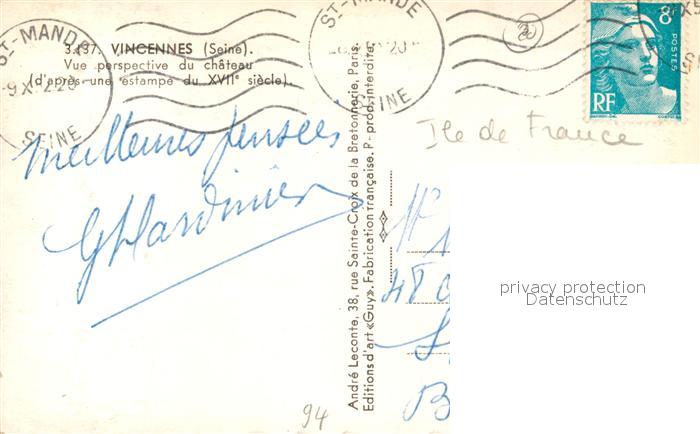 ST-MANDÉ
SEINE
3.137. VINCENNES (Seine).
Vue perspective du château
(d'après une estampe du XVIIe siècle).
ST-MANDE
SEINE
8F
POSTES
RF
Ile de France
Meilleures pensées
André Leconte, 38, rue Sainte-Croix de la Bretonnerie, Paris.
Editions d'art «Guy». Fabrication française. P - prod. interdite.
48
privacy protection
Datenschutz
94